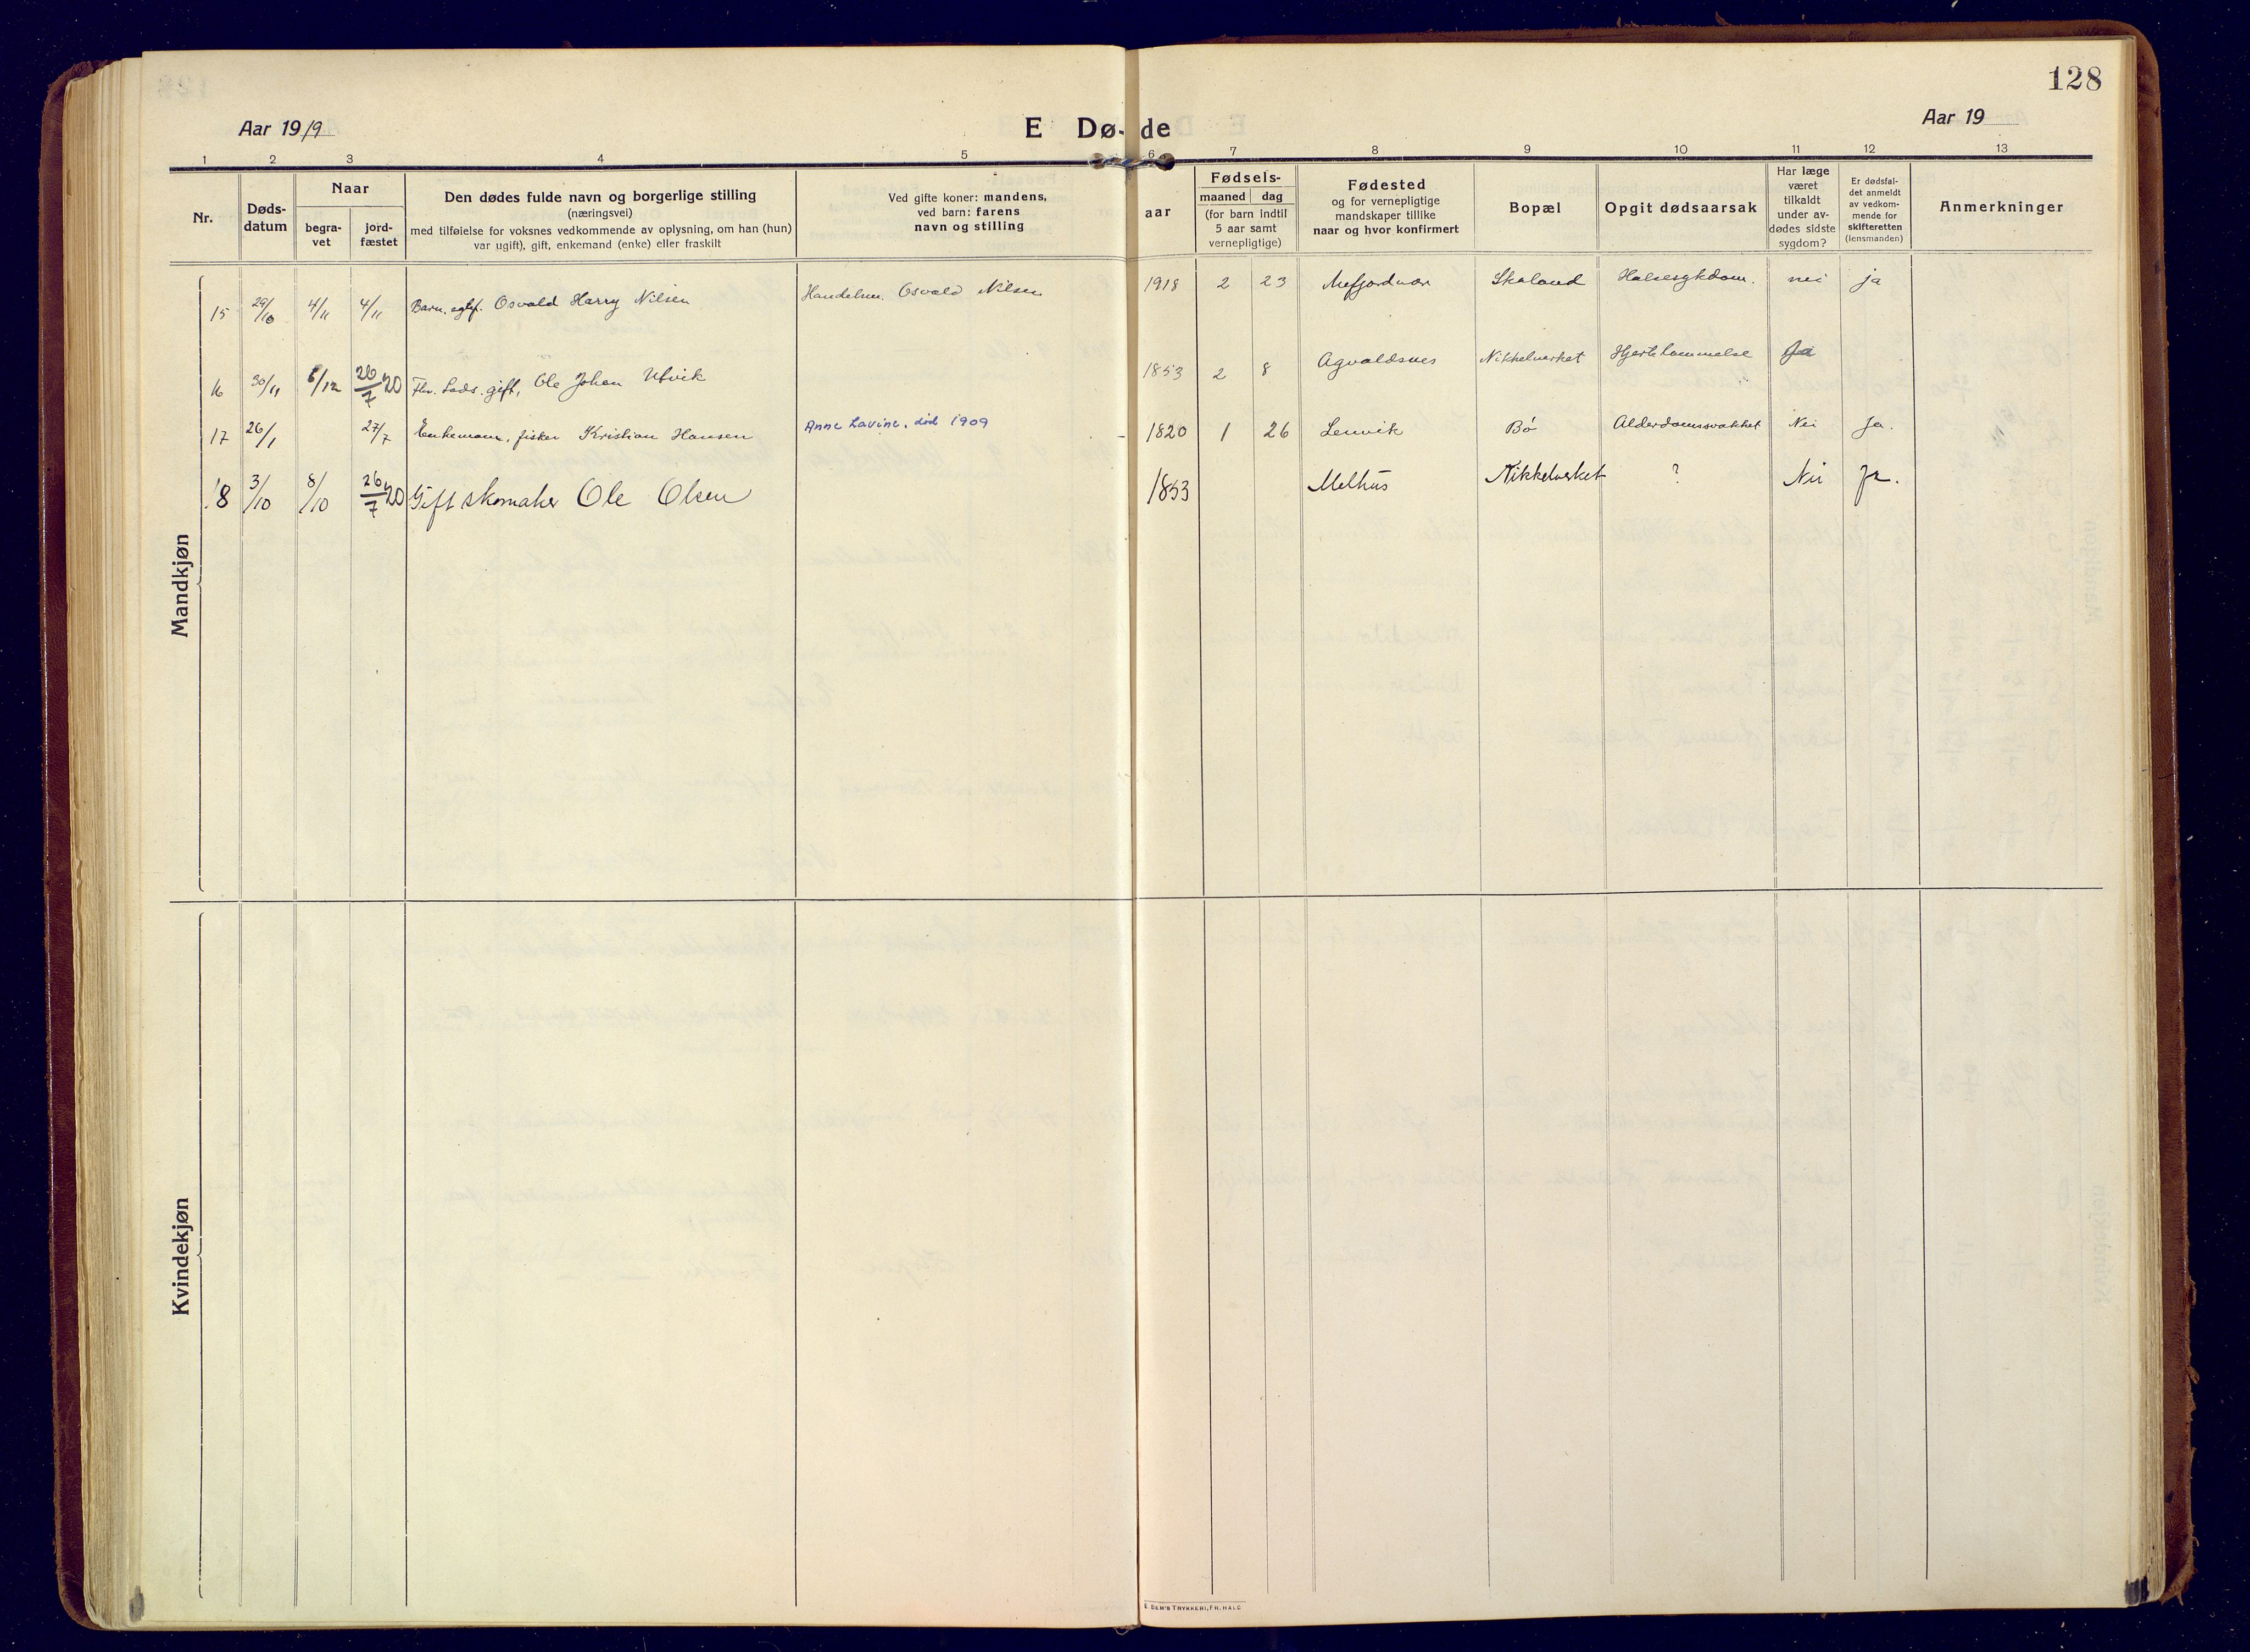 128
Aar 1919
E Dø- de
Aar 19
1 2 3 4 5 6 7 8 9 10 11 12 13
Nr.
Døds-
datum
Naar
begra-
vet
jord-
fæstet
Den dødes fulde navn og borgerlige stilling
(næringsvei)
med tilføielse for voksnes vedkommende av oplysning, om han (hun)
var ugift), gift, enkemand (enke) eller fraskilt
Ved gifte koner: mandens,
ved barn: farens
navn og stilling
aar
Fødsels-
maaned dag
(for barn indtil
5 aar samt
vernepligtige)
Fødested
og for vernepligtige
mandskaper tillike
naar og hvor konfirmert
Bopæl
Opgit dødsaarsak
Har læge
været
tilkaldt
under av-
dødes sidste
sygdom?
Er dødsfal-
det anmeldt
av vedkom-
mende for
skifteretten
(lensmanden)
Anmerkninger
Mandkjøn
15 29/10 4/11 4/11 Barn, egtf. Osvald Harry Nilsen Handelsm. Osvald Nilsen 1918 2 23 Mefjordvær Skaland Halsesykdom. nei ja
16 30/11 6/12 26/7 20 Fhv. Lods. gift, Ole Johan Utvik 1853 2 8 Agvaldsnes Nikkelverket Hjertelammelse Ja
17 26/1 27/7 Enkemann, fisker Kristian Hansen Anne Lavine. død 1909 - 1820 1 26 Lenvik Bø Alderdomssvakhet Nei Ja.
18 3/10 8/10 26/7 20 Gift skomaker Ole Olsen 1853 Melhus Nikkelverket ? Nei Ja.
Kvindekjøn
E. SEM'S TRYKKERI, FR.HALD